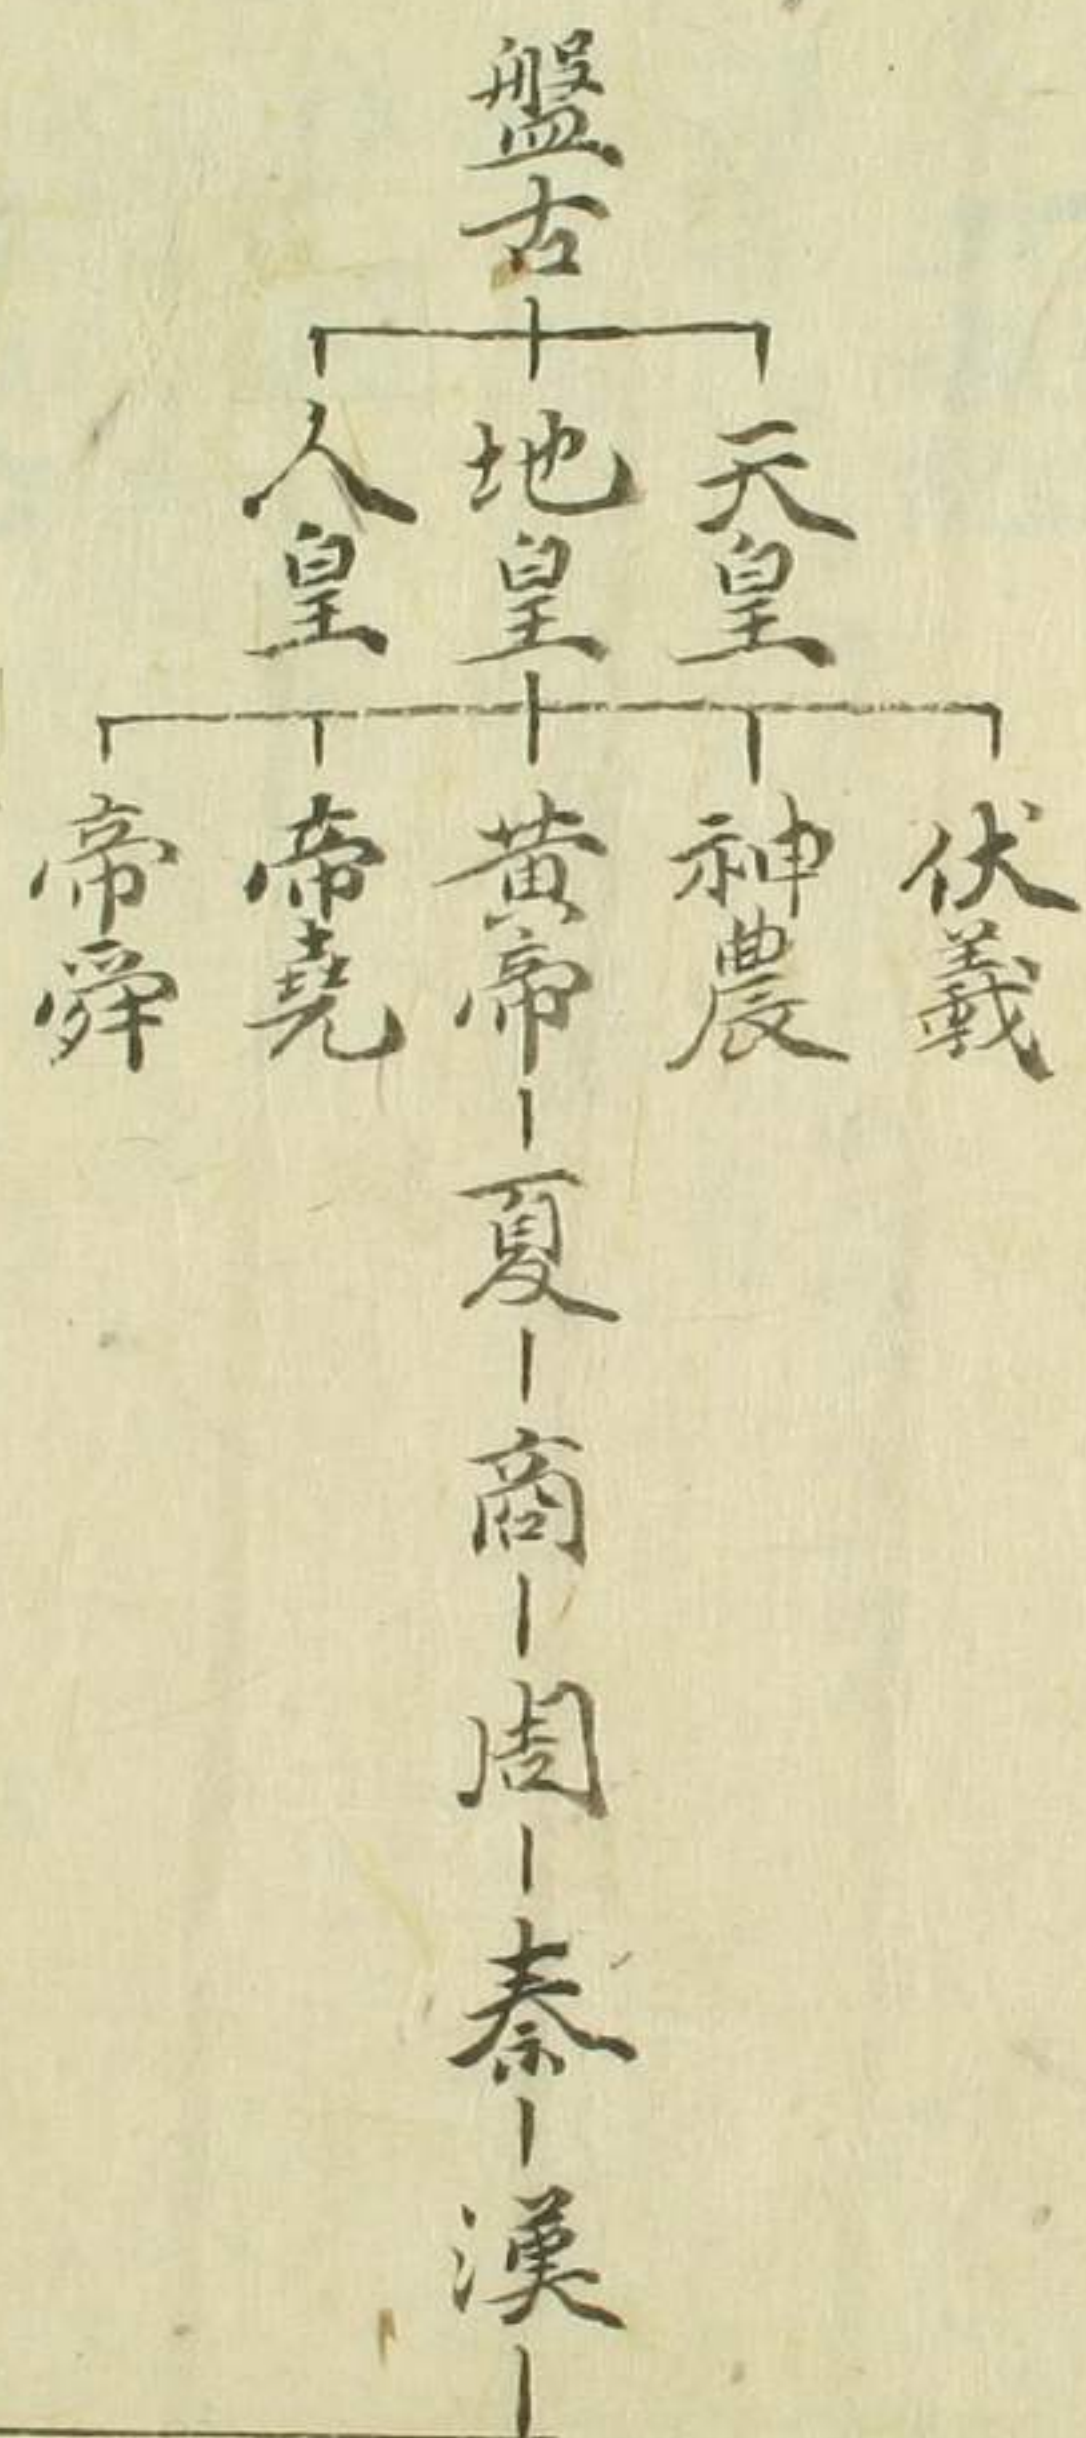 盤古
天皇
地皇
人皇
伏羲
神農
黄帝
帝堯
帝舜
夏
商
周
秦
漢